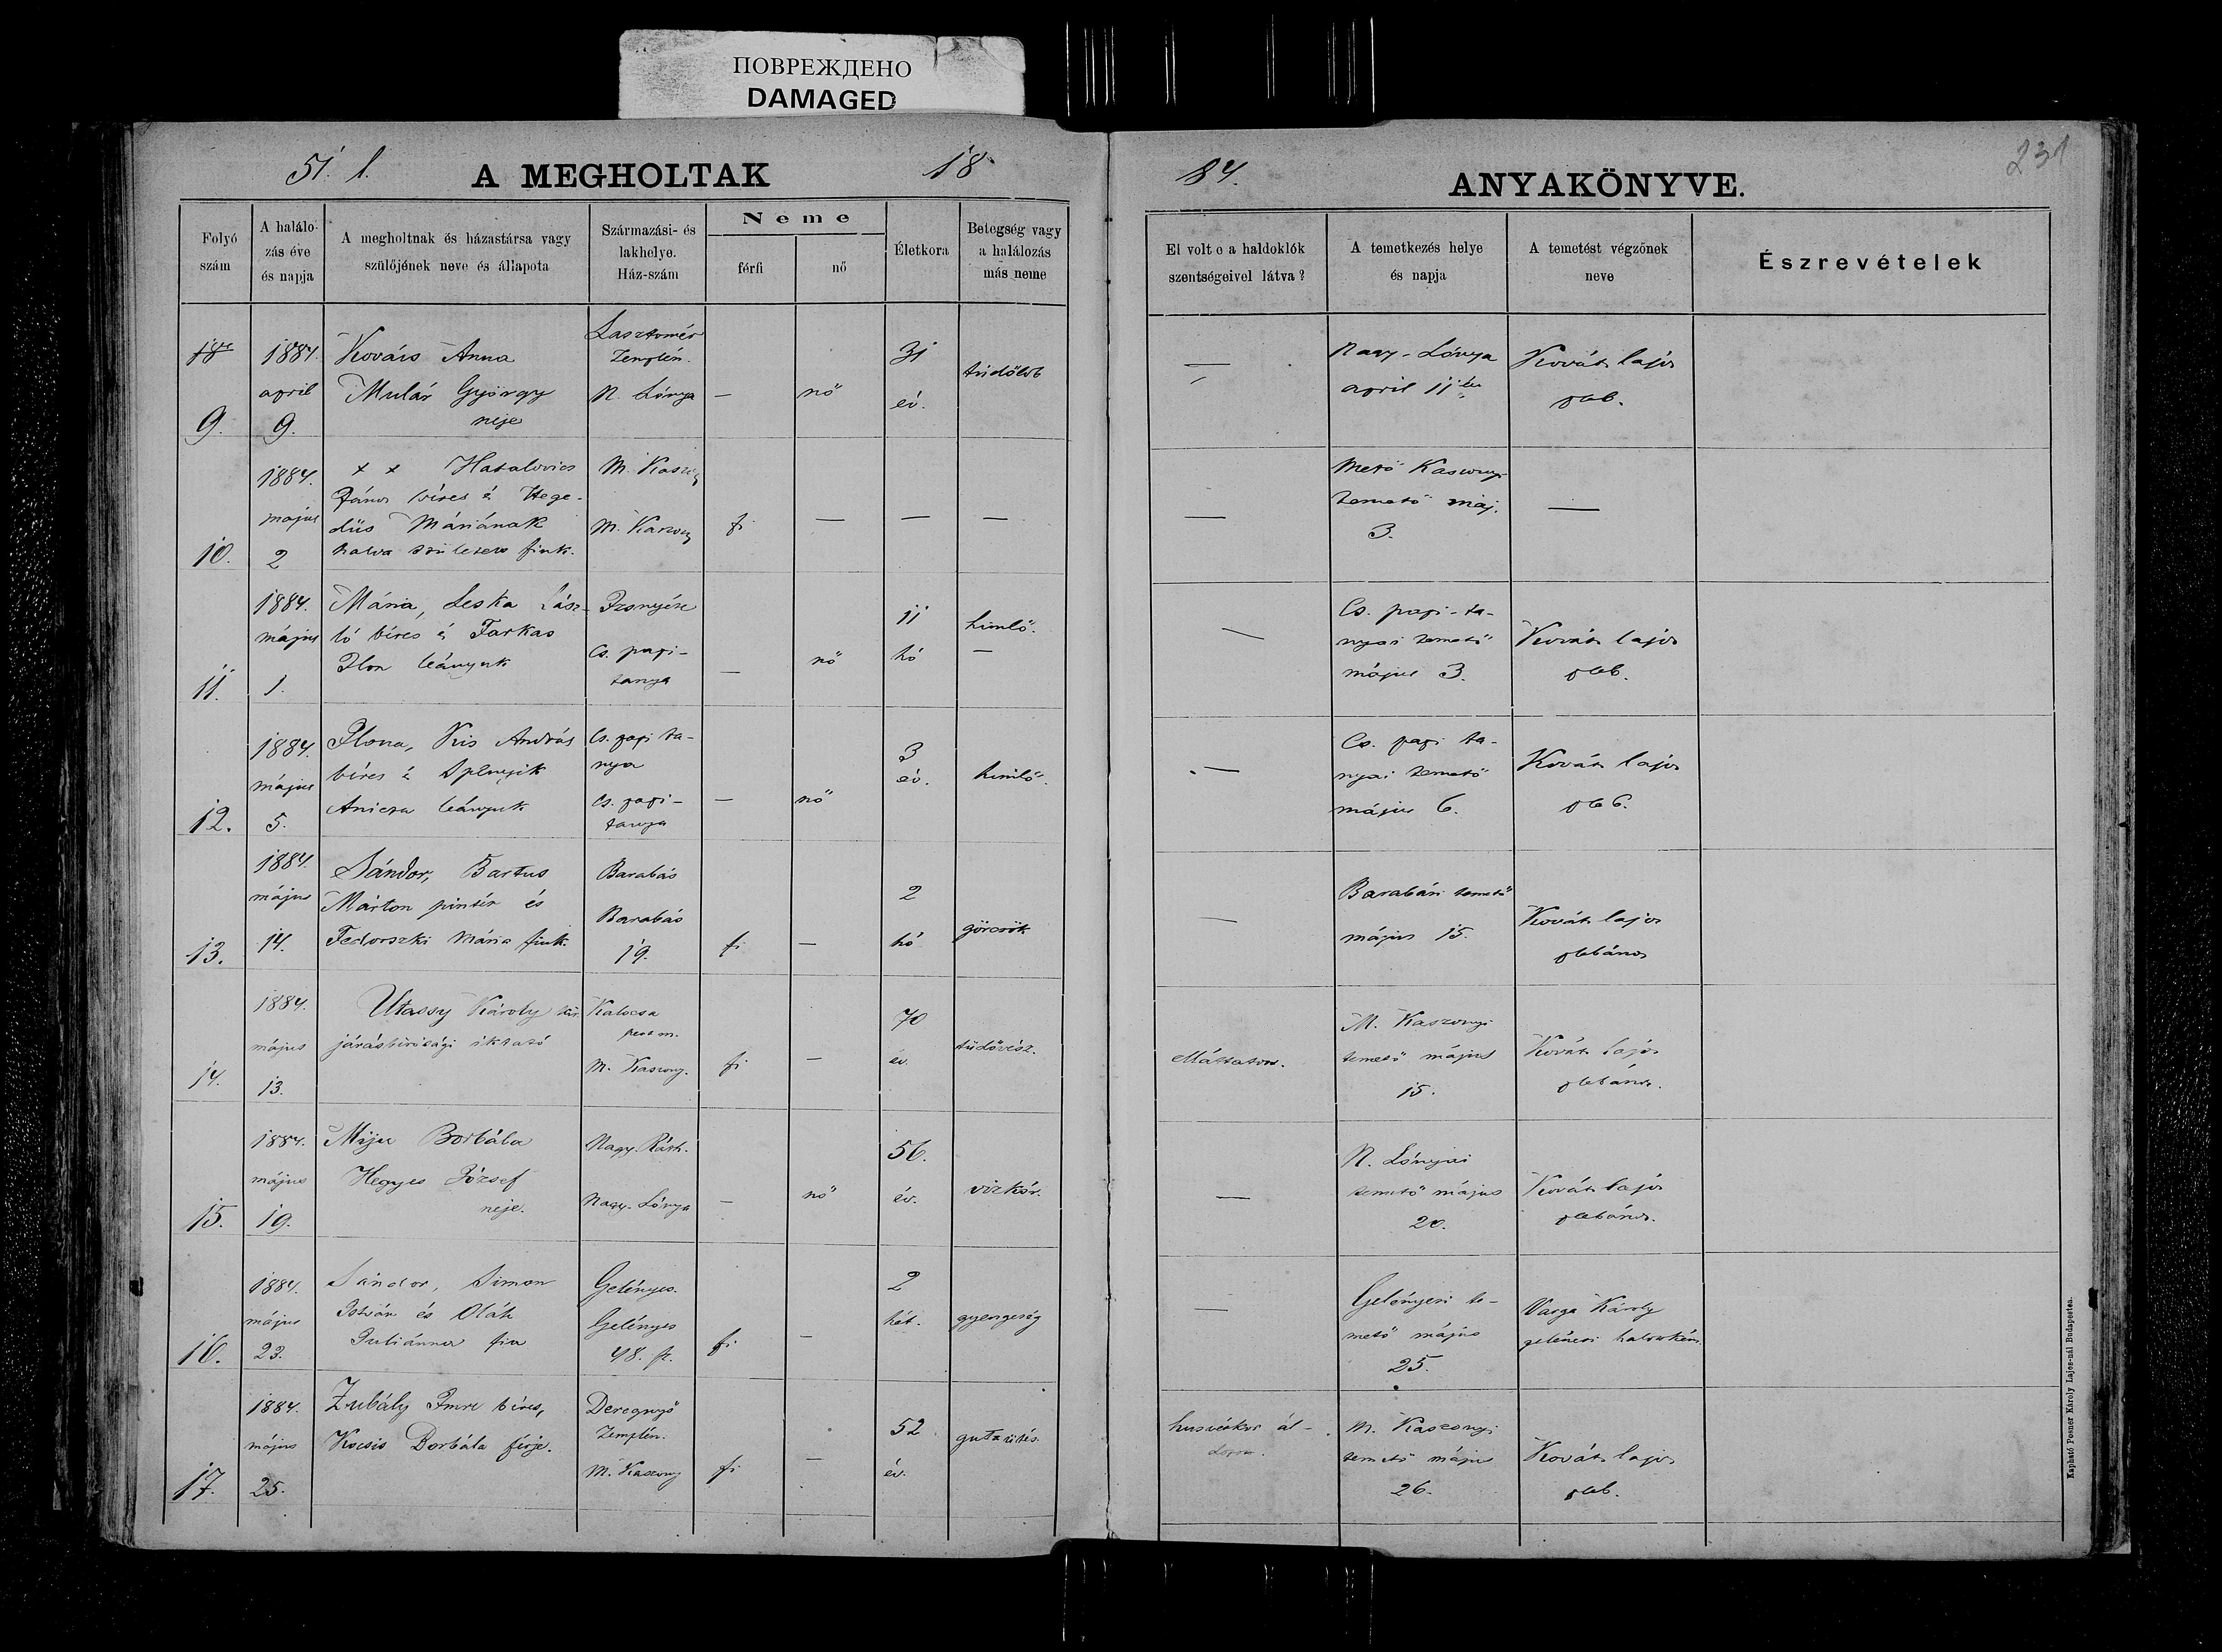 ПОВРЕЖДЕНО
DAMAGED
51. l.
A MEGHOLTAK
18
84.
ANYAKÖNYVE.
231
Folyó
szám
A halálo-
zás éve
és napja
A megholtnak és házastársa vagy
szülőjének neve és állapota
Származási- és
lakhelye.
Ház-szám
Neme
férfi
nő
Életkora
Betegség vagy
a halálozás
más neme
El volt e a haldoklók
szentségeivel látva?
A temetkezés helye
és napja
A temetést végzőnek
neve
Észrevételek
9.
1884.
april
9.
Kovács Anna
Mulár György
neje
Lasztomér
Zemplén.
N. Lónya
—
nő
31
év.
tüdőlob
—
Nagy-Lónya
april 11
Kováts lajos
pleb.
10.
1884.
majus
2
x x Hatalovics
János béres és Hege-
düs Máriának
halva született fiuk.
M. Kaszony
M. Kaszony
fi
—
—
—
—
Mező Kaszonyi
temető máj.
3.
—
11.
1884.
május
1.
Mária, Leska Lász-
ló béres és Farkas
Ilon leányuk
Cs. papi-
tanya
—
nő
11
hó
himlő.
—
—
Cs. papi-ta-
nyai temető
május 3.
Kováts lajos
pleb.
12.
1884.
május
5.
Ilona, Kis András
béres és
leányuk
Cs. papi ta-
nya
Cs. papi-
tanya
—
nő
3
év.
himlő.
—
Cs. papi ta-
nyai temető
május 6.
Kováts lajos
pleb.
13.
1884.
május
14.
Sándor, Bartus
Márton pintér és
Fedorszki Mária fiuk.
Barabás
Barabás
19.
fi
—
2
hó
görcsök
—
Barabási temető
május 15.
Kováts lajos
plébános
14.
1884.
május
13.
Utassy Károly kir.
járásbirósági iktató
Kalocsa
pest m.
M. Kaszony.
fi
—
70
év.
tüdővész.
ellátatott.
M. Kaszonyi
temető május
15.
Kováts lajos
plébános.
15.
1884.
május
19.
Borbála
Hegyes József
neje.
Nagy Ráth.
Nagy-Lónya
—
nő
56.
év.
vizkór.
—
N. Lónyai
temető május
20.
Kováts lajos
plébános.
16.
1884.
május
23.
Sándor, Simon
István és Oláh
Juliánna fia
Gelényes.
Gelényes
48. sz.
fi
—
2
hét.
gyengeség
—
Gelényesi te-
mető május
25.
Varga Károly
17.
1884.
május
25.
Zubály Imre béres,
Kocsis Borbála férje.
Deregnyő
Zemplén.
M. Kaszony
fi
—
52
év.
gutaütés.
husvétkor ál-
M. Kaszonyi
temető május
26.
Kováts lajos
pleb.
Kapható Posner Károly Lajos-nál Budapesten.